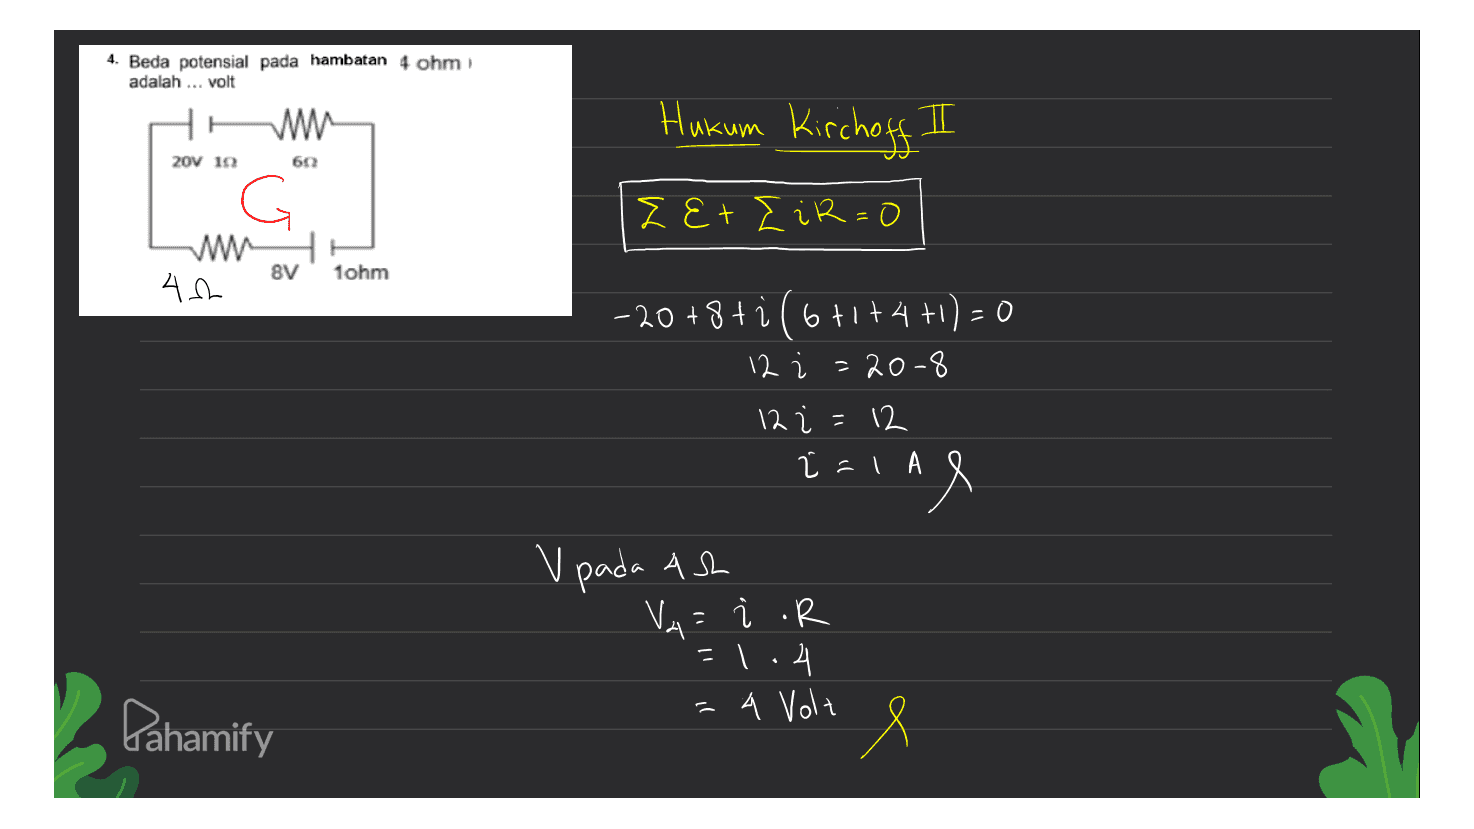 4. Beda potensial pada hambatan 4 ohm
adalah ... volt
20V 1Ω 6Ω
8V 1ohm
4Ω
Hukum Kirchoff II
Σ ε + Σ iR = 0
-20 + 8 + i (6 + 1 + 4 + 1) = 0
12 i = 20 - 8
12 i = 12
i = 1 A
V pada 4 Ω
V4 = i . R
= 1 . 4
= 4 Volt
Pahamify